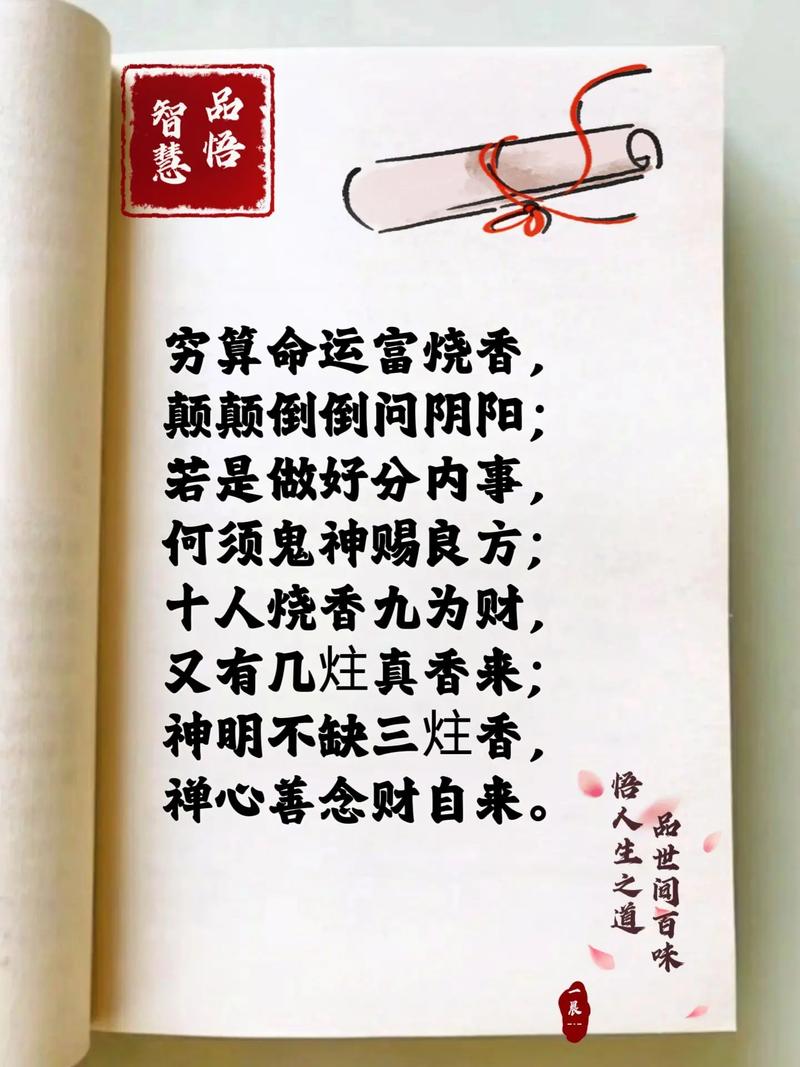 品悟
智慧
穷算命运富烧香，
颠颠倒倒问阴阳；
若是做好分内事，
何须鬼神赐良方；
十人烧香九为财，
又有几炷真香来；
神明不缺三炷香，
禅心善念财自来。
品世间百味
悟人生之道
一晨